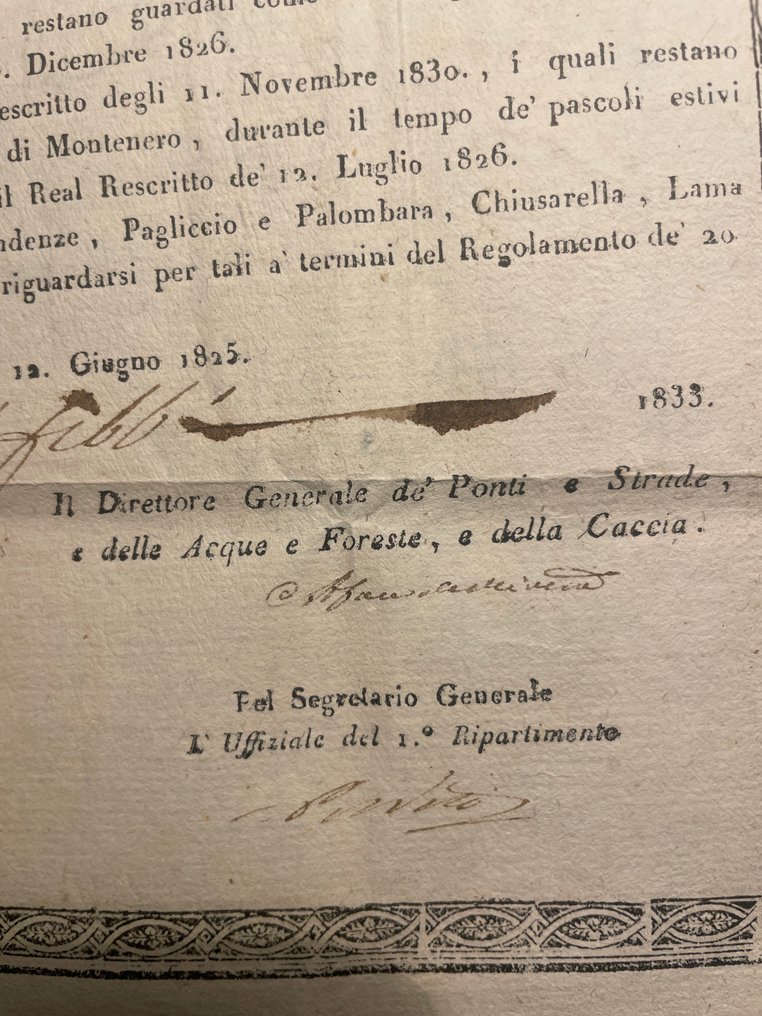 restano guardati come
. Dicembre 1826.
escritto degli 11. Novembre 1830., i quali restano
di Montenero, durante il tempo de' pascoli estivi
il Real Rescritto de' 12. Luglio 1826.
ndenze, Pagliccio e Palombara, Chiusarella, Lama
riguardarsi per tali a' termini del Regolamento de' 20.
12. Giugno 1825.
febb° 1833.
Il Direttore Generale de' Ponti e Strade,
e delle Acque e Foreste, e della Caccia.
C Afan de Rivera
Pel Segretario Generale
L' Uffiziale del 1.° Ripartimento